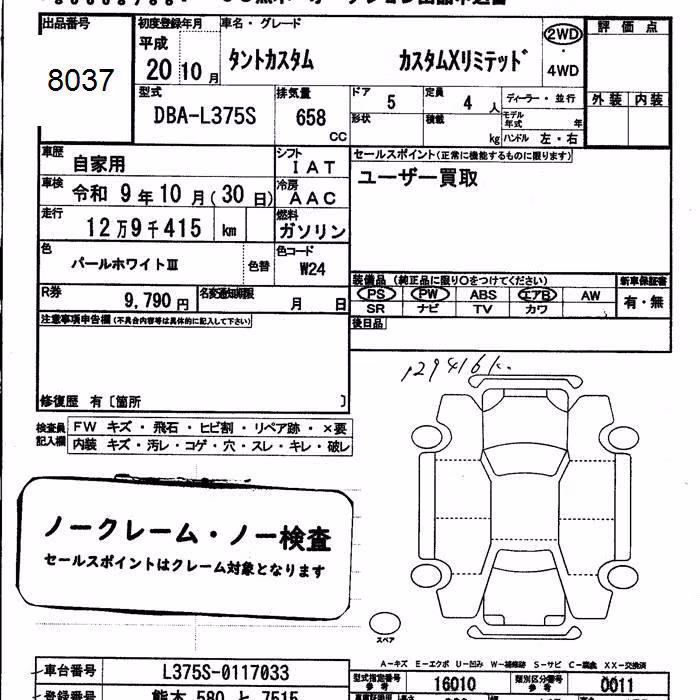 出品番号
8037
初度登録年月
平成
20 10 月
車名・グレード
タントカスタム カスタムXリミテッド
2WD
4WD
評価点
外装 内装
型式
DBA-L375S
排気量
658
CC
ドア
5
定員
4 人
形状
積載
kg
ディーラー・並行
モデル年式 年
ハンドル 左・右
車歴
自家用
シフト
IAT
セールスポイント(正常に機能するものに限ります)
ユーザー買取
車検
令和 9 年 10 月(30 日)
冷房
AAC
走行
12万9千415 km
燃料
ガソリン
色
パールホワイトⅢ
色替
色コード
W24
R券
9,790 円
名変通知期限
月 日
装備品(純正品に限り○をつけてください)
PS PW ABS エアB AW
SR ナビ TV カワ
新車保証書
有・無
後日品
注意事項申告欄(不具合内容等は具体的に記入して下さい)
修復歴 有〔箇所 〕
129416k.
検査員記入欄
FW キズ・飛石・ヒビ割・リペア跡・×要
内装 キズ・汚レ・コゲ・穴・スレ・キレ・破レ
ノークレーム・ノー検査
セールスポイントはクレーム対象となります
スペア
A−キズ E−エクボ U−凹み W−補修跡 S−サビ C−腐食 XX−交換済
車台番号
L375S-0117033
型式指定番号
参考
16010
類別区分番号
参考
0011
登録番号
熊本 580 と 7515